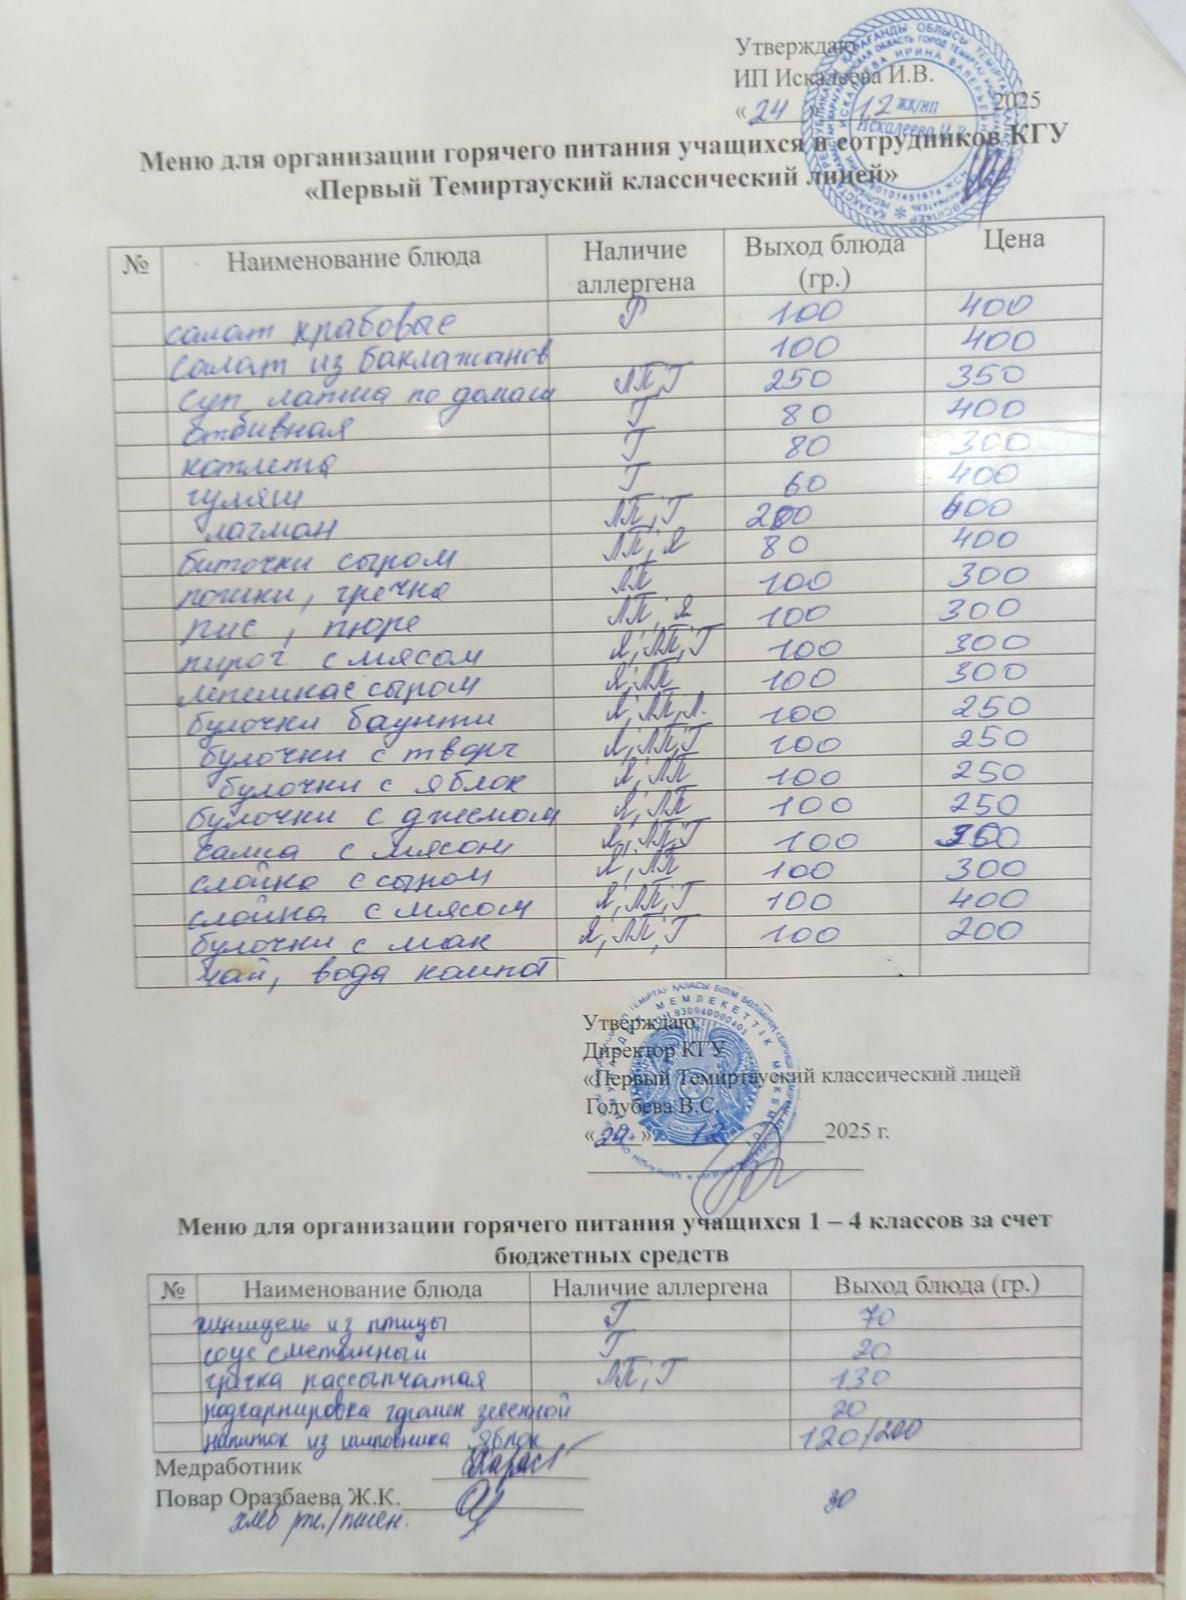 Утверждаю
ИП Искалеева И.В.
«24» 12 2025
Меню для организации горячего питания учащихся и сотрудников КГУ
«Первый Темиртауский классический лицей»
№ Наименование блюда Наличие аллергена Выход блюда (гр.) Цена
салат крабовые Р 100 400
салат из баклажанов 100 400
суп лапша по домаш ЛП,Г 250 350
отбивная Г 80 400
котлета Г 80 300
гуляш Г 60 400
лагман ЛП,Г 200 600
биточки сыром ЛП,Я 80 400
рошки, гречка ЛП 100 300
рис, пюре ЛП,Я 100 300
пирог с мясом Я,ЛП,Г 100 300
лепешка с сыром Я,ЛП 100 300
булочки баунти Я,ЛП,Л. 100 250
булочки с творг Я,ЛП,Г 100 250
булочки с яблок Я,ЛП 100 250
булочки с джемом Я,ЛП 100 250
самса с мясом Я,ЛП,Г 100
слойка с сыром Я,ЛП 100 300
слойка с мясом Я,ЛП,Г 100 400
булочки с мак Я,ЛП,Г 100 200
чай, вода компот
Утверждаю:
Директор КГУ
«Первый Темиртауский классический лицей
Голубева В.С.
«24» 12 2025 г.
Меню для организации горячего питания учащихся 1 – 4 классов за счет
бюджетных средств
№ Наименование блюда Наличие аллергена Выход блюда (гр.)
шницель из птицы Г 70
соус сметанный Г 20
гречка рассыпчатая ЛП,Г 130
подгарнировка горошек зеленной 20
напиток из шиповника, яблок 120/200
Медработник
Повар Оразбаева Ж.К. 30
хлеб рж./пшен.